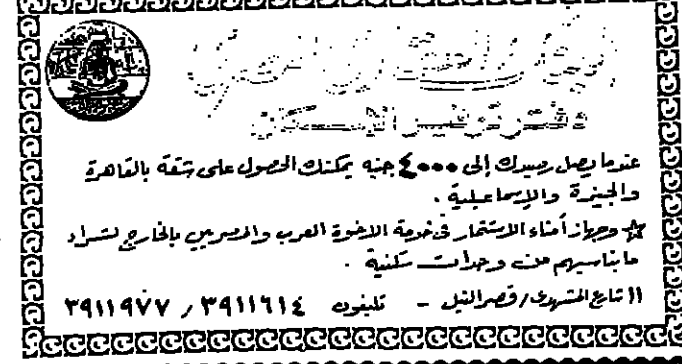 البنك العقارى المصرى
دفتر توفير الإسكان
عندما يصل رصيدك إلى ٤٠٠٠ جنيه يمكنك الحصول على شقة بالقاهرة
والجيزة والإسماعيلية .
وجهاز أمناء الاستثمار فى خدمة الاخوة العرب والمصريين بالخارج لشراء
ما يناسبهم من وحدات سكنية .
١١ شارع المشهدى / قصر النيل - تليفون ٣٩١١٦١٤ / ٣٩١١٩٧٧